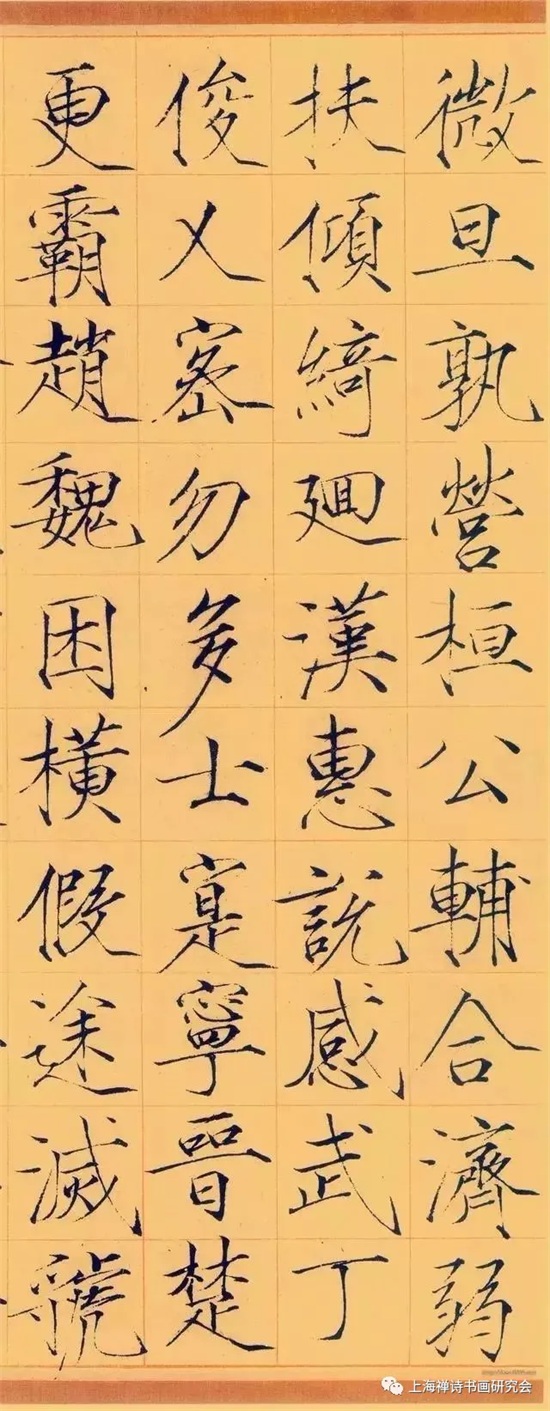 微旦孰營桓公輔合濟弱
扶傾綺迴漢惠說感武丁
俊乂密勿多士寔寧晉楚
更霸趙魏困橫假途滅虢
上海禅诗书画研究会